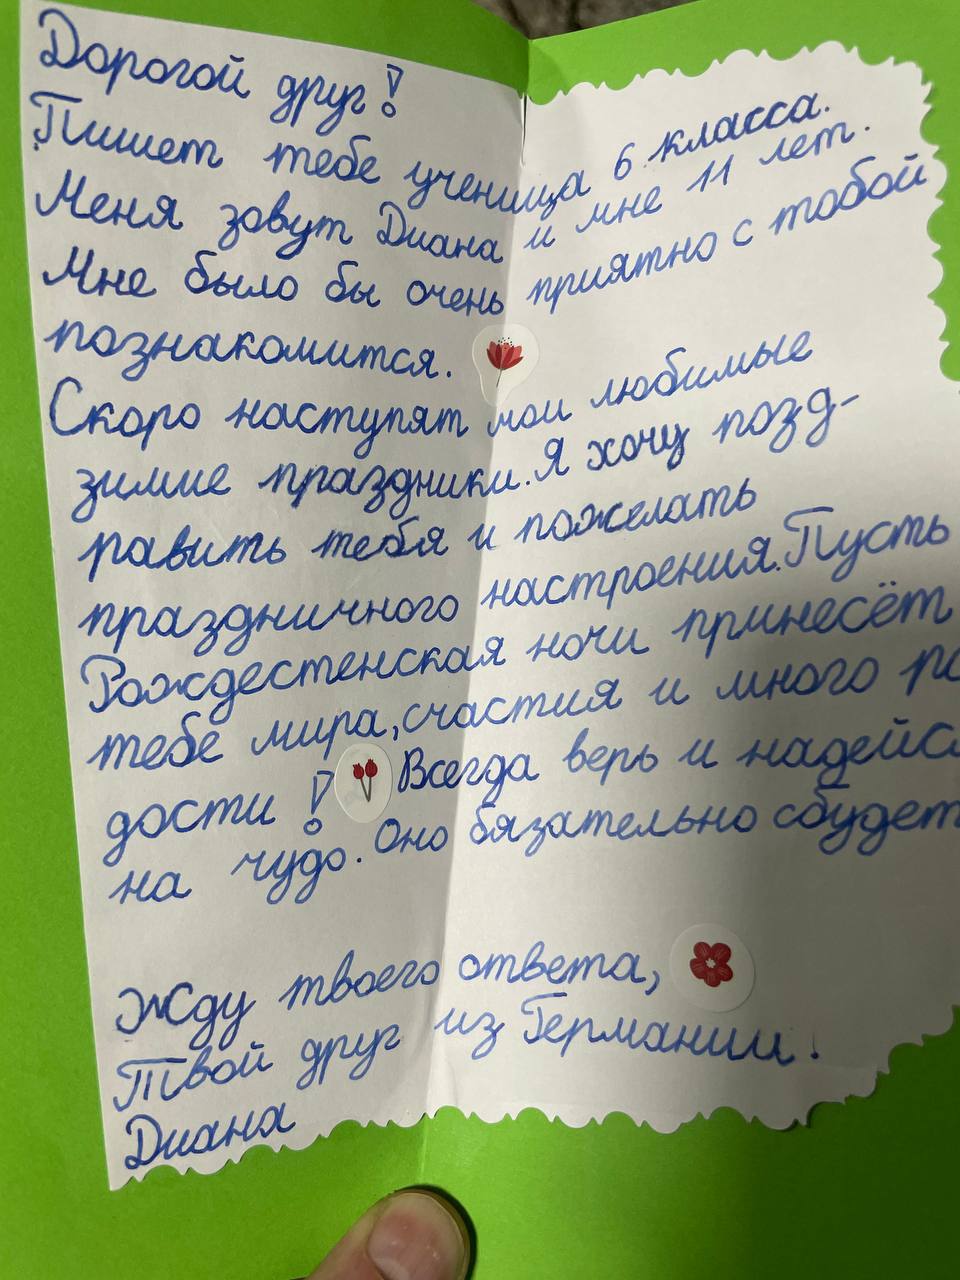 Дорогой друг!
Пишет тебе ученица 6 класса.
Меня зовут Диана и мне 11 лет.
Мне было бы очень приятно с тобой
познакомится.
Скоро наступят мои любимые
зимние праздники. Я хочу позд-
равить тебя и пожелать
праздничного настроения. Пусть
Рождестенская ночи принесёт
тебе мира, счастия и много ра
дости! Всегда верь и надейся
на чудо. Оно бязательно сбудет
Жду твоего ответа,
Твой друг из Германии!
Диана